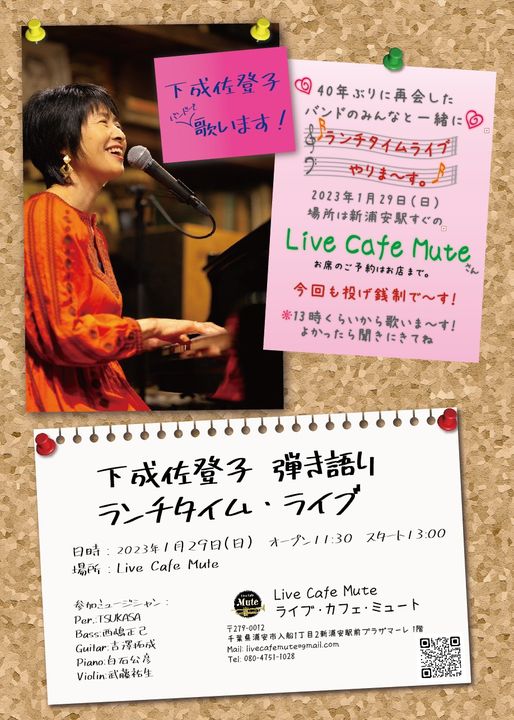 下成佐登子
バンドで
歌います！
40年ぶりに再会した
バンドのみんなと一緒に
ランチタイムライブ
やりま〜す。
2023年1月29日(日)
場所は新浦安駅すぐの
Live Cafe Muteさん
お席のご予約はお店まで。
今回も投げ銭制で〜す！
※13時くらいから歌いま〜す！
よかったら聞きにきてね
下成佐登子 弾き語り
ランチタイム・ライブ
日時：2023年1月29日(日) オープン11:30 スタート13:00
場所：Live Cafe Mute
参加ミュージシャン：
Per.:TSUKASA
Bass:西嶋正己
Guitar:吉澤拓成
Piano:白石公彦
Violin:武藤祐生
Live Cafe
Mute
Live Cafe Mute
ライブ・カフェ・ミュート
〒279-0012
千葉県浦安市入船1丁目2新浦安駅前プラザマーレ 1階
Mail: livecafemute@gmail.com
Tel: 080-4751-1028